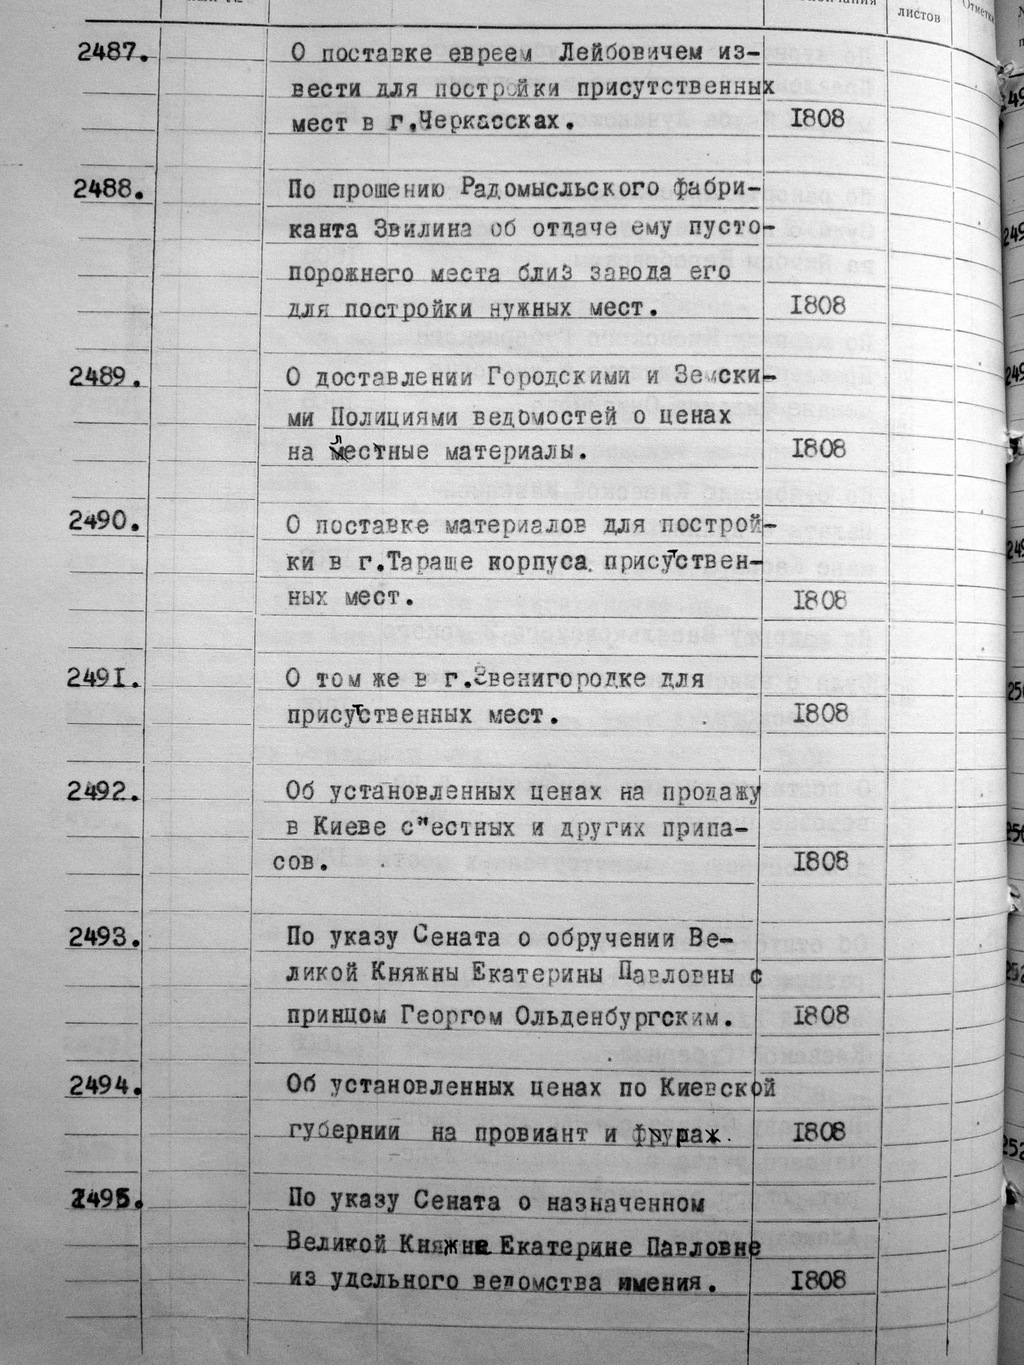 листов
2487. О поставке евреем Лейбовичем из-
вести для постройки присутственных
мест в г.Черкассках. 1808
2488. По прошению Радомысльского фабри-
канта Звилина об отдаче ему пусто-
порожнего места близ завода его
для постройки нужных мест. 1808
2489. О доставлении Городскими и Земски-
ми Полициями ведомостей о ценах
на местные материалы. 1808
2490. О поставке материалов для построй-
ки в г.Тараще корпуса присутствен-
ных мест. 1808
2491. О том же в г.Звенигородке для
присутственных мест. 1808
2492. Об установленных ценах на продажу
в Киеве с"естных и других припа-
сов. 1808
2493. По указу Сената о обручении Ве-
ликой Княжны Екатерины Павловны с
принцом Георгом Ольденбургским. 1808
2494. Об установленных ценах по Киевской
губернии на провиант и фураж. 1808
2495. По указу Сената о назначенном
Великой Княжне Екатерине Павловне
из удельного ведомства имения. 1808